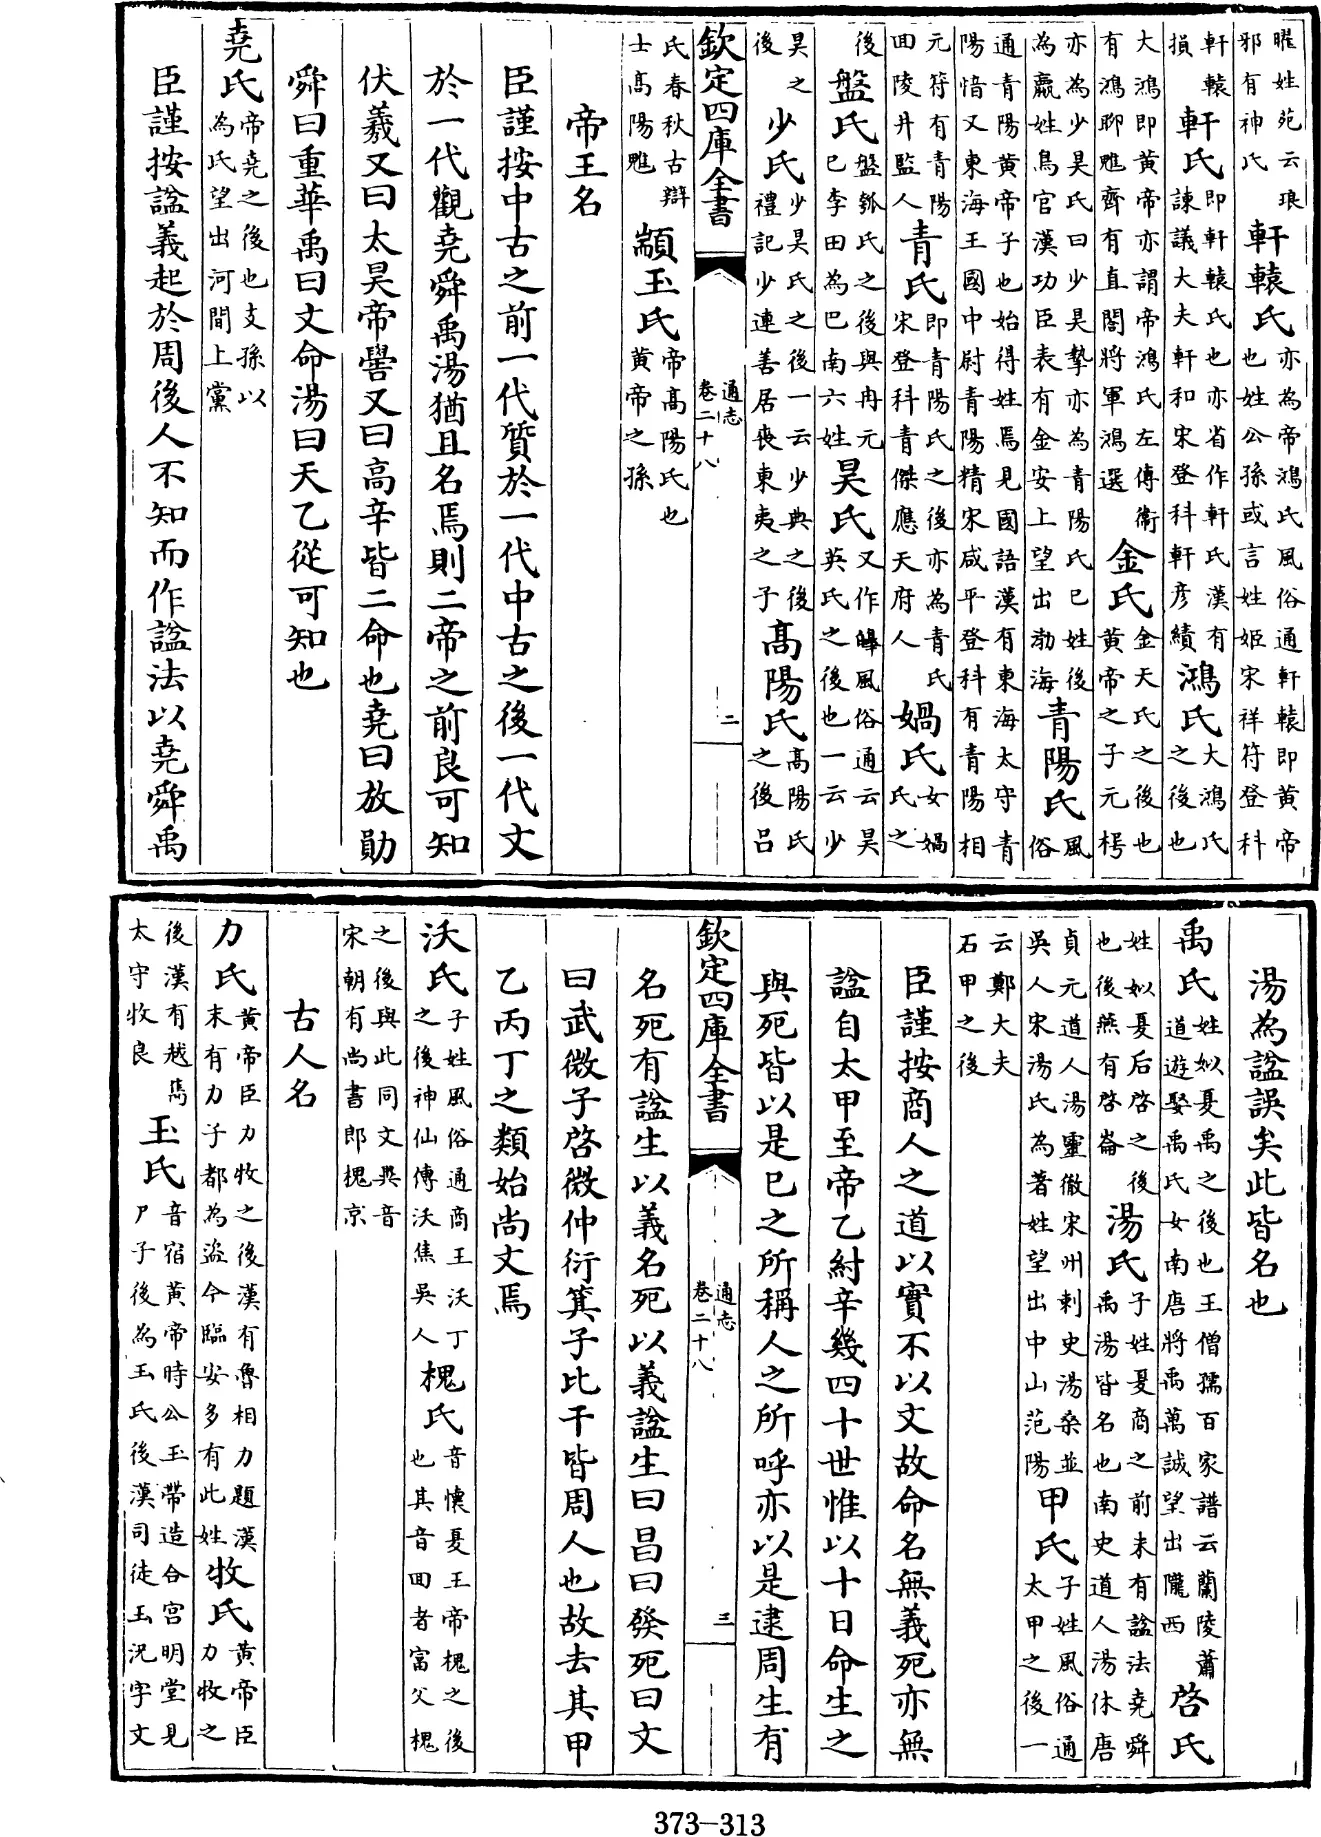 曜姓苑云琅邪有神氏軒轅氏亦為帝鴻氏風俗通軒轅即黄帝也姓公孫或言姓姬宋祥符登科
軒轅損軒氏即軒轅氏也亦省作軒氏漢有諫議大夫軒和宋登科軒彦績鴻氏大鴻氏之後也
大鴻即黄帝亦謂帝鴻氏左傳衛有鴻聊魋齊有直閤將軍鴻選金氏金天氏之後也黄帝之子元枵
亦為少昊氏曰少昊摯亦為青陽氏巳姓後為嬴姓鳥官漢功臣表有金安上望出渤海青陽氏風俗
通青陽黄帝子也始得姓焉見國語漢有東海太守青陽愔又東海王國中尉青陽精宋咸平登科有青陽相
元符有青陽田陵井監人青氏即青陽氏之後亦為青氏宋登科青傑應天府人媧氏女媧氏之
後盤氏盤瓠氏之後與冉元巳李田為巴南六姓昊氏又作皥風俗通云昊英氏之後也一云少
昊之後少氏少昊氏之後一云少典之後禮記少連善居喪東夷之子髙陽氏髙陽氏之後吕
欽定四庫全書 通志卷二十八 二
氏春秋古辯士髙陽魋顓玉氏帝髙陽氏也黄帝之孫
帝王名
臣謹按中古之前一代質於一代中古之後一代文
於一代觀堯舜禹湯猶且名焉則二帝之前良可知
伏羲又曰太昊帝嚳又曰高辛皆二命也堯曰放勛
舜曰重華禹曰文命湯曰天乙從可知也
堯氏帝堯之後也支孫以為氏望出河間上黨
臣謹按諡義起於周後人不知而作諡法以堯舜禹
湯為諡誤矣此皆名也
禹氏姓姒夏禹之後也王僧孺百家譜云蘭陵蕭道遊娶禹氏女南唐將禹萬誠望出隴西啓氏
姓姒夏后啓之後也後燕有啓崙湯氏子姓夏商之前未有諡法堯舜禹湯皆名也南史道人湯休唐
貞元道人湯靈徹宋州刺史湯桑並吳人宋湯氏為著姓望出中山范陽甲氏子姓風俗通太甲之後一
云鄭大夫石甲之後
臣謹按商人之道以實不以文故命名無義死亦無
諡自太甲至帝乙紂辛幾四十世惟以十日命生之
與死皆以是巳之所稱人之所呼亦以是逮周生有
欽定四庫全書 通志卷二十八 三
名死有諡生以義名死以義諡生曰昌曰發死曰文
曰武微子啓微仲衍箕子比干皆周人也故去其甲
乙丙丁之類始尚文焉
沃氏子姓風俗通商王沃丁之後神仙傳沃焦吳人槐氏音懷夏王帝槐之後也其音回者富父槐
之後與此同文異音宋朝有尚書郎槐京
古人名
力氏黃帝臣力牧之後漢有魯相力題漢末有力子都為盜今臨安多有此姓牧氏黃帝臣力牧之
後漢有越嶲太守牧良玉氏音宿黄帝時公玉帶造合宮明堂見尸子後為玉氏後漢司徒玉況字文
373-313